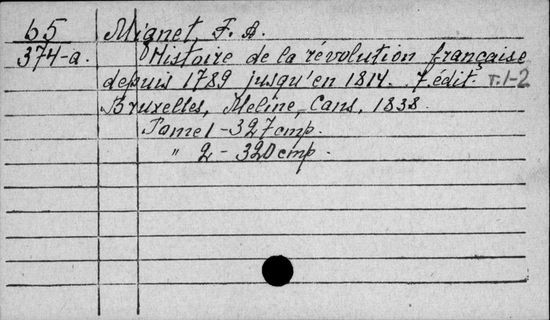 65 Mignet, F. A.
374-a. Histoire de la révolution française
depuis 1789 jusqu'en 1814. 7. édit. т.1-2
Bruxelles, Meline, Cans, 1838.
Tome 1 - 327 стр.
" 2 - 320 стр.